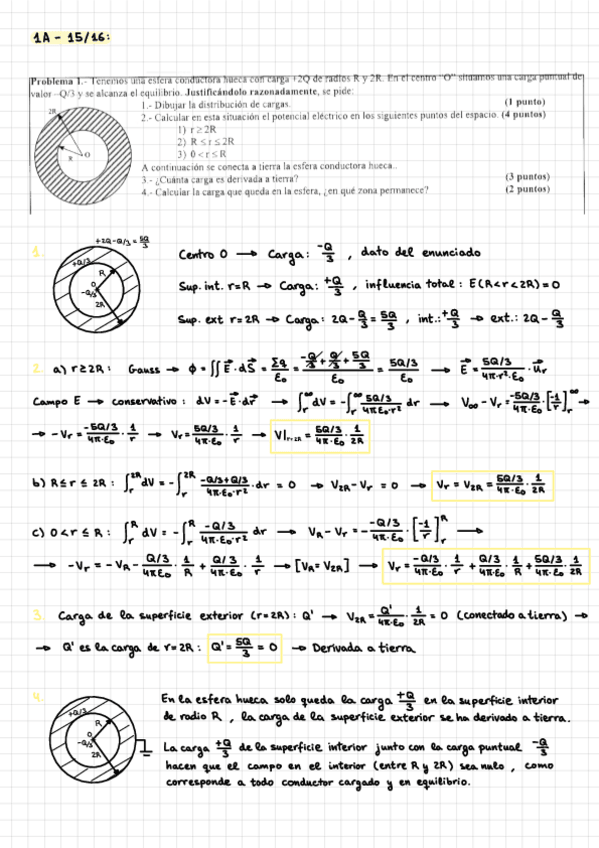 1A - 15/16:
Problema 1.- Tenemos una esfera conductora hueca con carga +2Q de radios R y 2R. En el centro "O" situamos una carga puntual de
valor –Q/3 y se alcanza el equilibrio. Justificándolo razonadamente, se pide:
1.- Dibujar la distribución de cargas. (1 punto)
2.- Calcular en esta situación el potencial eléctrico en los siguientes puntos del espacio. (4 puntos)
1) r ≥ 2R
2) R ≤ r ≤ 2R
3) 0 < r ≤ R
A continuación se conecta a tierra la esfera conductora hueca..
3.- ¿Cuánta carga es derivada a tierra? (3 puntos)
4.- Calcular la carga que queda en la esfera, ¿en qué zona permanece? (2 puntos)
2R
R
O
1.
+2Q-Q/3 = 5Q/3
+Q/3
R
O
-Q/3
2R
Centro O → Carga: -Q/3 , dato del enunciado
Sup. int. r=R → Carga: +Q/3 , influencia total: E(R<r<2R)=0
Sup. ext r=2R → Carga: 2Q - Q/3 = 5Q/3 , int.: +Q/3 → ext.: 2Q - Q/3
2. a) r≥2R: Gauss → ϕ = ∬ E⃗·dS⃗ = Σq/ε₀ = (-Q/3 + Q/3 + 5Q/3)/ε₀ = (5Q/3)/ε₀ → E⃗ = (5Q/3)/(4π·r²·ε₀) · u⃗r
Campo E → conservativo: dV = -E⃗·dr⃗ → ∫r^∞ dV = -∫r^∞ (5Q/3)/(4πε₀·r²) dr → V∞ - Vr = (-5Q/3)/(4π·ε₀) · [-1/r]r^∞ →
→ -Vr = (-5Q/3)/(4π·ε₀) · 1/r → Vr = (5Q/3)/(4π·ε₀) · 1/r → V|r=2R = (5Q/3)/(4π·ε₀) · 1/2R
b) R≤r≤2R: ∫r^2R dV = -∫r^2R (-Q/3+Q/3)/(4π·ε₀·r²) · dr = 0 → V2R - Vr = 0 → Vr = V2R = (5Q/3)/(4π·ε₀) · 1/2R
c) 0<r≤R: ∫r^R dV = -∫r^R (-Q/3)/(4π·ε₀·r²) dr → VR - Vr = - (-Q/3)/(4π·ε₀) · [-1/r]r^R →
→ -Vr = -VR - (Q/3)/(4πε₀) · 1/R + (Q/3)/(4π·ε₀) · 1/r → [VR = V2R] → Vr = (-Q/3)/(4π·ε₀) · 1/r + (Q/3)/(4π·ε₀) · 1/R + (5Q/3)/(4π·ε₀) · 1/2R
3. Carga de la superficie exterior (r=2R): Q' → V2R = Q'/(4π·ε₀) · 1/2R = 0 (conectado a tierra) →
→ Q' es la carga de r=2R: Q' = 5Q/3 = 0 → Derivada a tierra
4.
+Q/3
R
O
-Q/3
2R
En la esfera hueca solo queda la carga +Q/3 en la superficie interior
de radio R , la carga de la superficie exterior se ha derivado a tierra.
La carga +Q/3 de la superficie interior junto con la carga puntual -Q/3
hacen que el campo en el interior (entre R y 2R) sea nulo , como
corresponde a todo conductor cargado y en equilibrio.